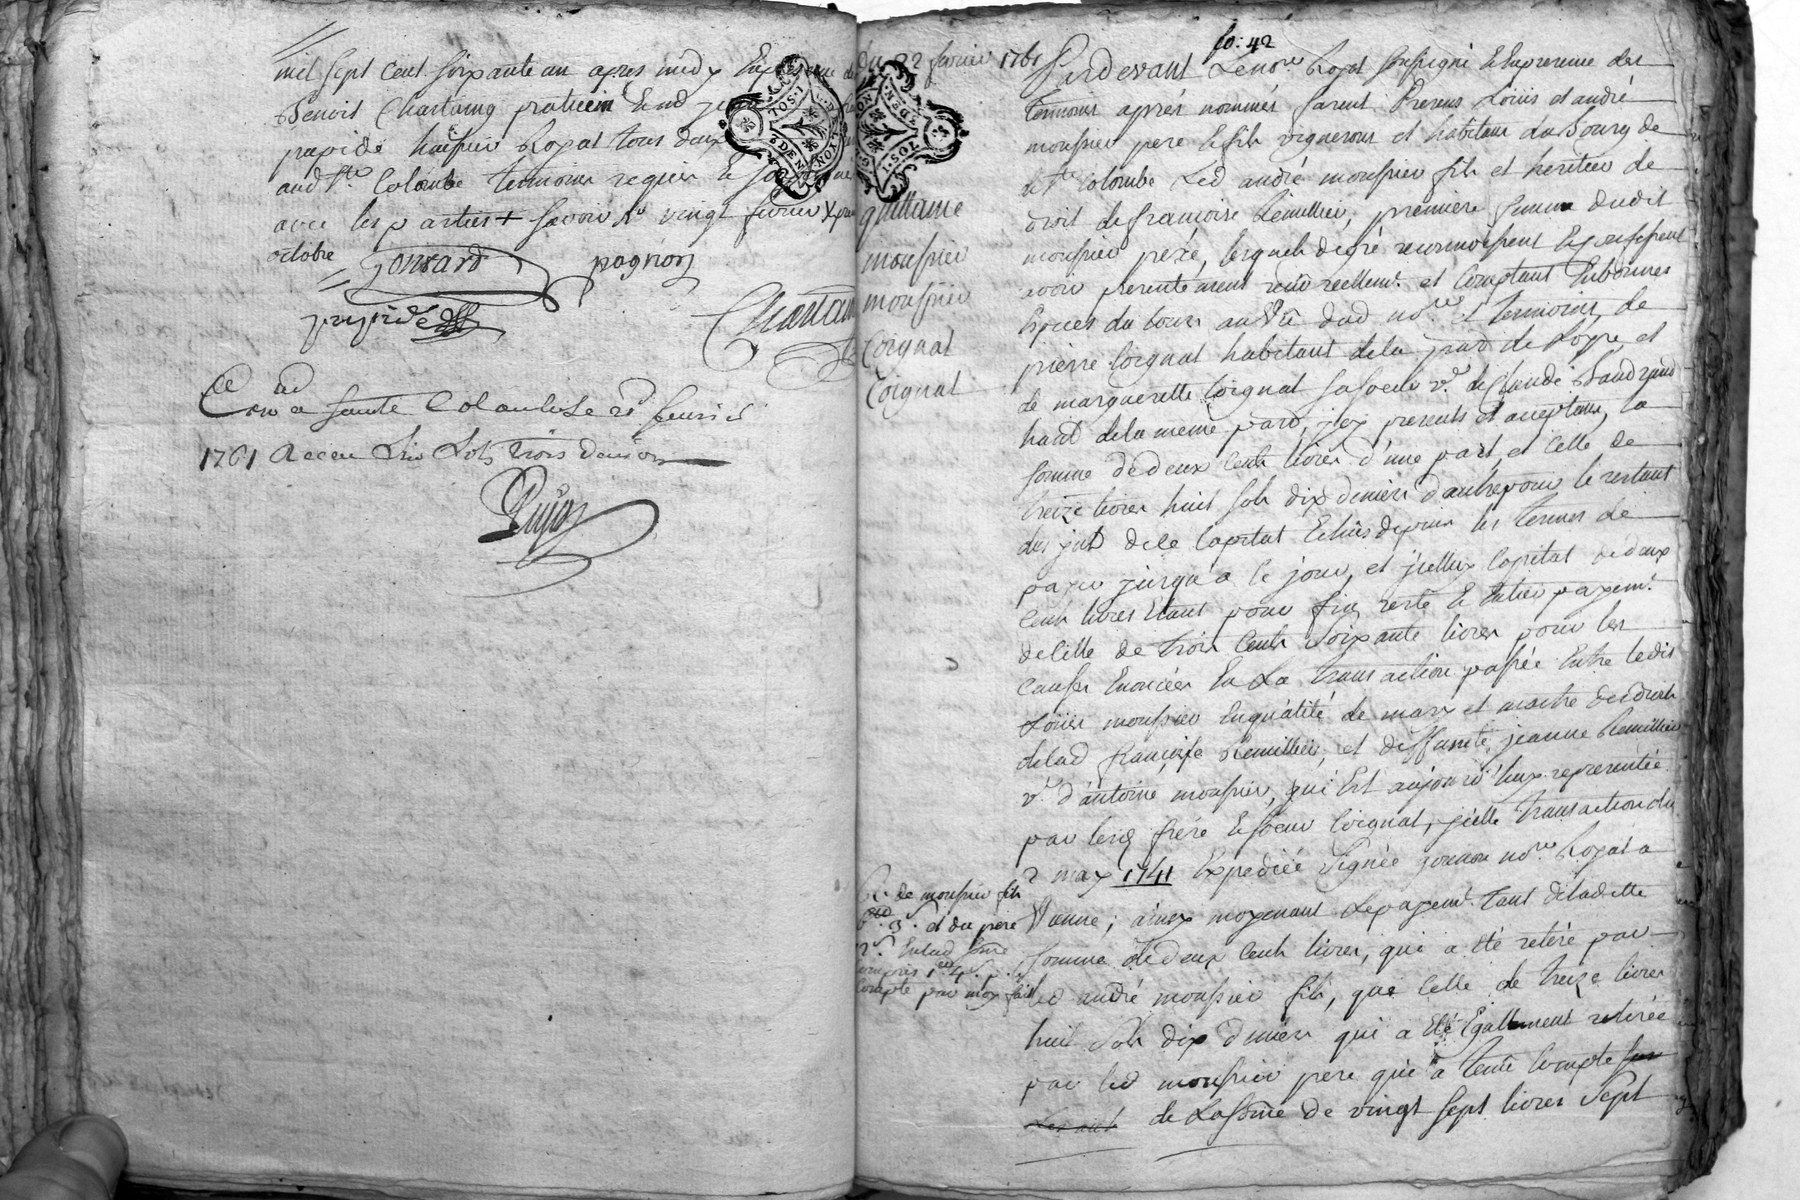 mil sept cent soixante un apres midy En presence de
Benoit Chartaing praticien
papide huissier Royal tous deux
aud Ste Colombe temoins requis
avec les parties + savoir le vingt fevrier
octobre
jonsard pagnon
papide
Chartain
Con a sainte Colombe le 22 feuvrier
1761 Receu six sols trois deniers
Du 22 fevrier 1761
quittance
mousnier
mousnier
Coignat
Coignat
R. de mousnier fils
3. et du pere
Enlad some
compris
compte par moy fait
fo: 42
Pardevant Le nore Royal soussigné En presence des
temoins aprés nommés furent Presens Loüis et andré
mousnier pere et fils vignerons et habitans du bourg de
Ste Colombe Led andré mousnier fils et heritier de
droit de françoise Remillier, premiere femme dudit
mousnier pere, lesquels de gré reconnoissent Et confessent
avoir presentement recu reellemt. et Comptant En bonnes
Especes du cours au Vû dud nore et temoins, de
pierre Coignat habitant de la par. de Loyre, et
de marguerette Coignat sa soeur ve. de Claude
habt. de la meme par., icy presents et acceptans, la
somme de deux Cents livres d'une part, et Celle de
treize livres huit sols dix deniers d'autre pour le restant
des int. de ce Capital Echus depuis les termes de
payer jusqu'a ce jour, et jcelluy Capital de deux
Cents livres Etant pour fin, reste Et Entier payemt.
de Celle de trois Cents soixante livres pour les
causes Enoncées En La transaction passée Entre ledit
Loüis mousnier En qualité de mary et maitre des droits
de lad françoise Remillier, et deffunte, jeanne Remillier
ve. d'antoine mousnier, qui Est aujourd'huy representée
par lesd frére Et soeur Coignat, jcelle transaction du
2 may 1741 Expediée signée nore. Royal a
Vienne; ainsy moyenant Le payemt. tant de ladette
somme de deux Cents livres, qui a Eté retiré par
led andré mousnier fils, que Celle de treize livres
huit sols dix deniers qui a Eté Egallement retirée
par led mousnier pere qui a tenu compte sur
de La somme de vingt sept livres sept